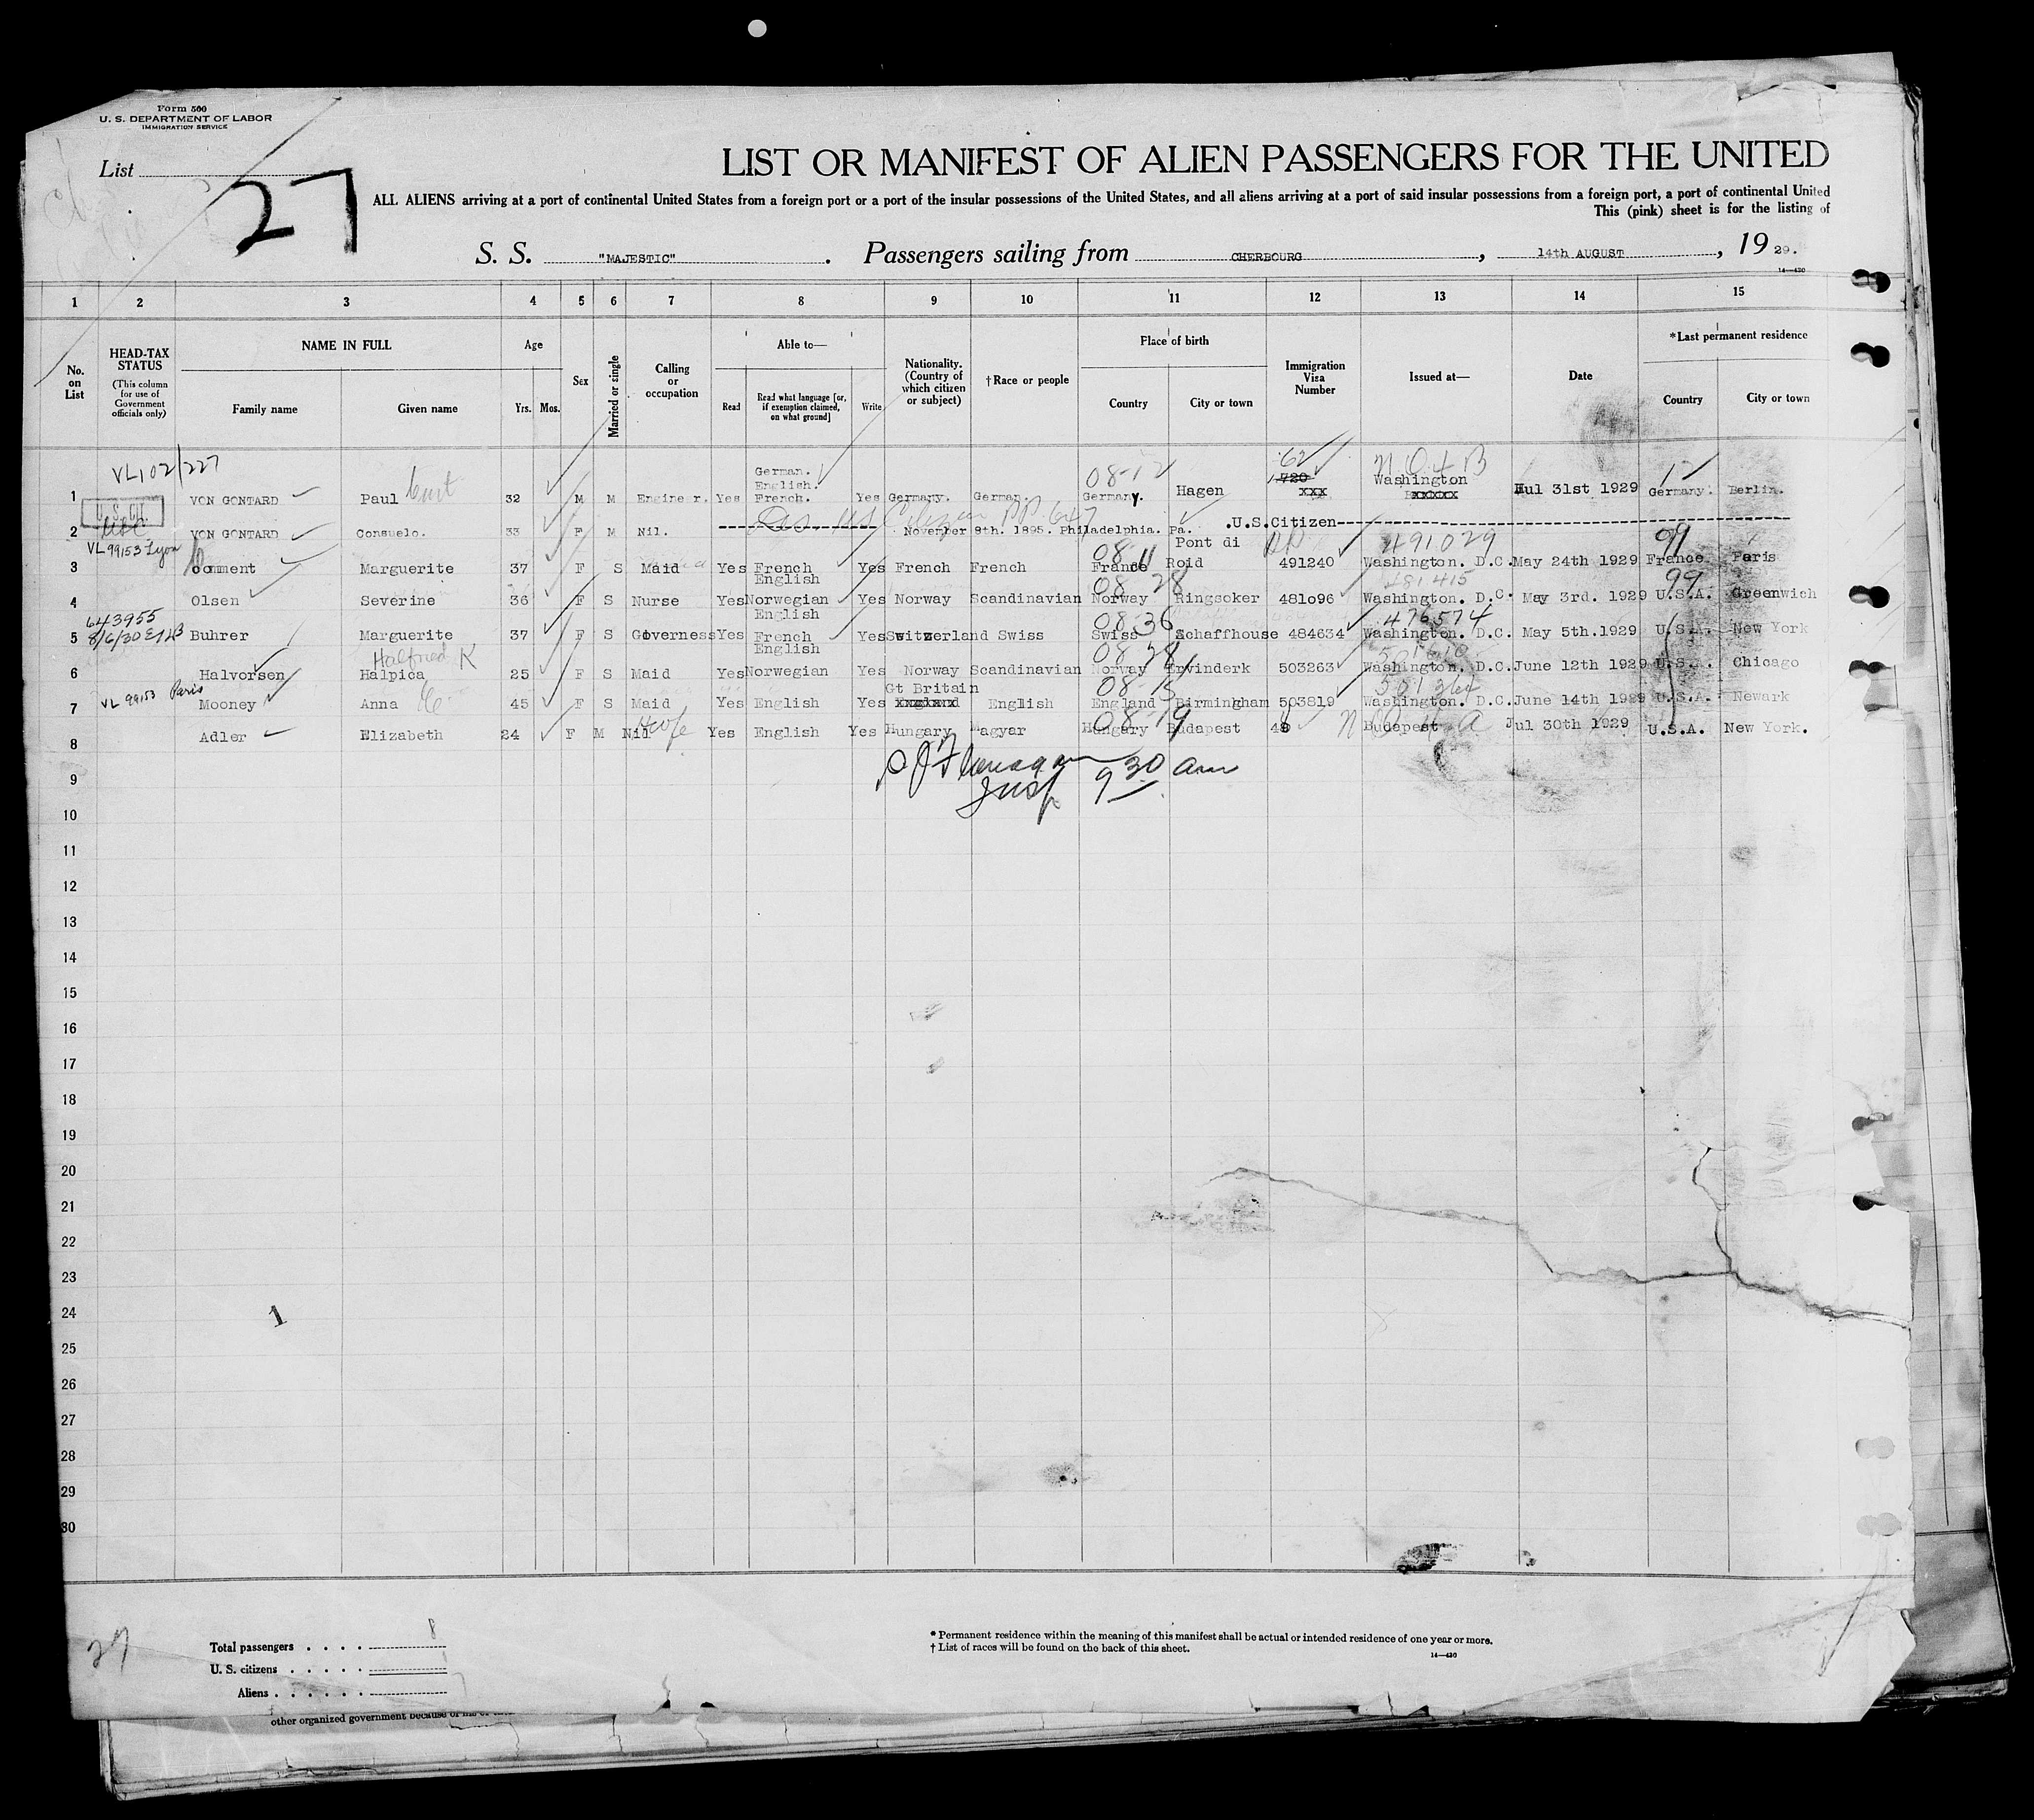 Form 500
U. S. DEPARTMENT OF LABOR
IMMIGRATION SERVICE
List
27
LIST OR MANIFEST OF ALIEN PASSENGERS FOR THE UNITED
ALL ALIENS arriving at a port of continental United States from a foreign port or a port of the insular possessions of the United States, and all aliens arriving at a port of said insular possessions from a foreign port, a port of continental United
This (pink) sheet is for the listing of
S. S. "MAJESTIC". Passengers sailing from CHERBOURG, 14th AUGUST, 1929.
14—430
1 2 3 4 5 6 7 8 9 10 11 12 13 14 15
No. on List
HEAD-TAX STATUS
(This column for use of Government officials only)
NAME IN FULL
Family name Given name
Age
Yrs. Mos.
Sex
Married or single
Calling or occupation
Able to—
Read
Read what language [or, if exemption claimed, on what ground]
Write
Nationality. (Country of which citizen or subject)
†Race or people
Place of birth
Country City or town
Immigration Visa Number
Issued at—
Date
*Last permanent residence
Country City or town
VL102/227
1 VON GONTARD Paul Curt 32 M M Engineer. Yes German. English. French. Yes Germany. German. 08-12 Germany. Hagen 62 720 xxx N.Q. 4 B Washington xxxxxx Jul 31st 1929 12 Germany. Berlin.
2 VON GONTARD Consuelo. 33 F M Nil. November 8th. 1895. Philadelphia. Pa. .U.S.Citizen
VL 99153 Lyon
3 Comment Marguerite 37 F S Maid Yes French English Yes French French 08-11 France Pont di Roid 491240 491029 Washington. D.C. May 24th 1929 99 France Paris
4 Olsen Severine 36 F S Nurse Yes Norwegian English Yes Norway Scandinavian 08 28 Norway Ringsoker 481096 481415 Washington. D.C. May 3rd. 1929 99 U.S.A. Greenwich
643955
8/6/30
5 Buhrer Marguerite 37 F S Governess Yes French English Yes Switzerland Swiss 08 36 Swiss Schaffhouse 484634 476574 Washington. D.C. May 5th.1929 U.S.A. New York
6 Halvorsen Halpica Halfried K 25 F S Maid Yes Norwegian Yes Norway Scandinavian 08 28 Norway Ervinderk 503263 Washington. D.C. June 12th 1929 U.S.A. Chicago
VL 99153 Paris
7 Mooney Anna 45 F S Maid Yes English Yes Gt Britain England English 08-15 England Birmingham 503819 501364 Washington. D.C. June 14th 1929 U.S.A. Newark
8 Adler Elizabeth 24 F M Nil Hwfe Yes English Yes Hungary Magyar 08-19 Hungary Budapest Budapest Jul 30th 1929 U.S.A. New York.
Flanagan
Insp. 9 30 am
9
10
11
12
13
14
15
16
17
18
19
20
21
22
23
24
1
25
26
27
28
29
30
27
Total passengers . . . . 8
U. S. citizens . . . . . 1
Aliens . . . . . . 7
* Permanent residence within the meaning of this manifest shall be actual or intended residence of one year or more.
† List of races will be found on the back of this sheet.
14—430
other organized government because of